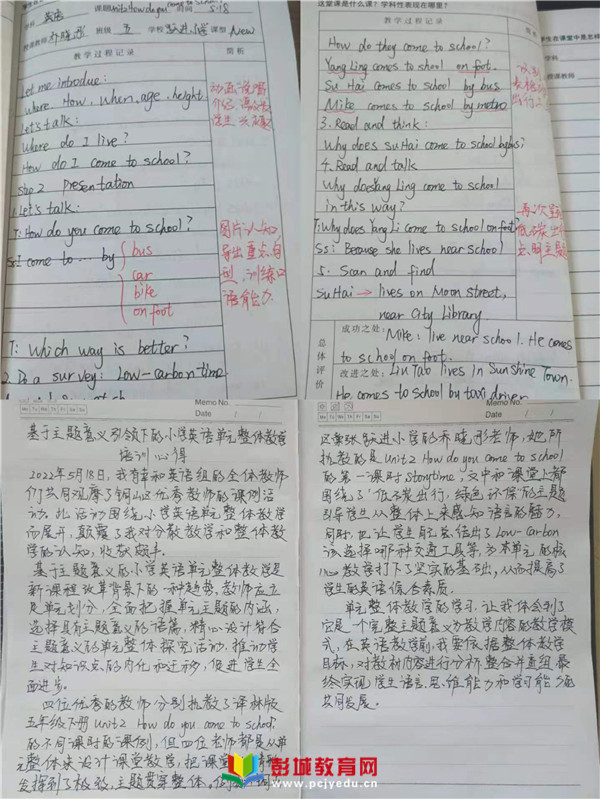 英语
课题 Unit2 How do you come
时间 5.18
授课教师
班级 五
学校
课型 New
教学过程记录
简析
Let me introduce:
Where, How, when, age, height
Let's talk:
Where do I live?
How do I come to school?
Step 2 Presentation
1. Let's talk:
T: How do you come to school?
Ss: I come to … by
bus
car
bike
on foot
T: Which way is better?
2. Do a survey: Low-carbon time
图片认知
导出重点句
型,训练口
语能力
这堂课是什么课?学科性表现在哪里?
教学过程记录
简析
How do they come to school?
Yang Ling comes to school on foot.
Su Hai comes to school by bus
Mike comes to school by metro
3. Read and think:
Why does Su Hai come to school by bus?
4. Read and talk
Why does Yang Ling come to school
in this way?
T: Why does Yang Li come to school on foot?
Ss: Because she lives near school
5. Scan and find
Su Hai → lives on Moon street,
near City Library
再次
低碳出行
点明主题
总体评价
成功之处:
Mike: live near school. He comes
to school on foot.
改进之处:
Liu Tao lives in Sunshine Town.
He comes to school by taxi driver
学生在课堂中是怎样
学科
授课教师
Memo No.
Mo Tu We Th Fr Sa Su
Date / /
基于主题意义引领下的小学英语单元整体教学
培训心得
2022年5月18日,我有幸和英语组的全体教师
们共同观摩了铜山区优秀教师的课例活
动。此活动围绕小学英语单元整体教学
而展开,颠覆了我对分散教学和整体教
学的认知,收获颇丰。
基于主题意义的小学英语单元整体教学是
新课程改革背景下的一种趋势,教师应立
足单元划分,全面把握单元主题的内涵,
选择具有主题意义的语篇,精心设计符合
主题意义的单元整体探究活动,推动学
生对知识点的内化和迁移,促进学生全
面进步。
四位优秀的教师分别执教了译林版
五年级下册Unit2 How do you come to school?
的不同课时的课例,但四位老师都是从单
元整体来设计课堂教学,把课堂
发挥到了极致,主题贯穿整体。
Memo No.
Mo Tu We Th Fr Sa Su
Date / /
跃进小学的乔晓彤老师,她所
执教的是Unit2 How do you come to school
的第一课时Storytime,文中和课堂上都
围绕了"低碳出行,绿色环保"的主题
引导学生从整体上来感知语言的魅力,
同时,也让学生自己总结出了Low-carbon
该选择哪种交通工具等,为本单元的核
心教学打下了坚实的基础,从而提高了
学生的英语综合素质。
单元整体教学的学习,让我体会到了
它是一个完整主题意义为教学内容的教学模
式,在英语教学前,我要依据整体教学
目标,对教材内容进行分析整合并重组,最
终实现学生语言、思维能力和学习能力的
共同发展。
彭城教育网
www.pcjyedu.cn